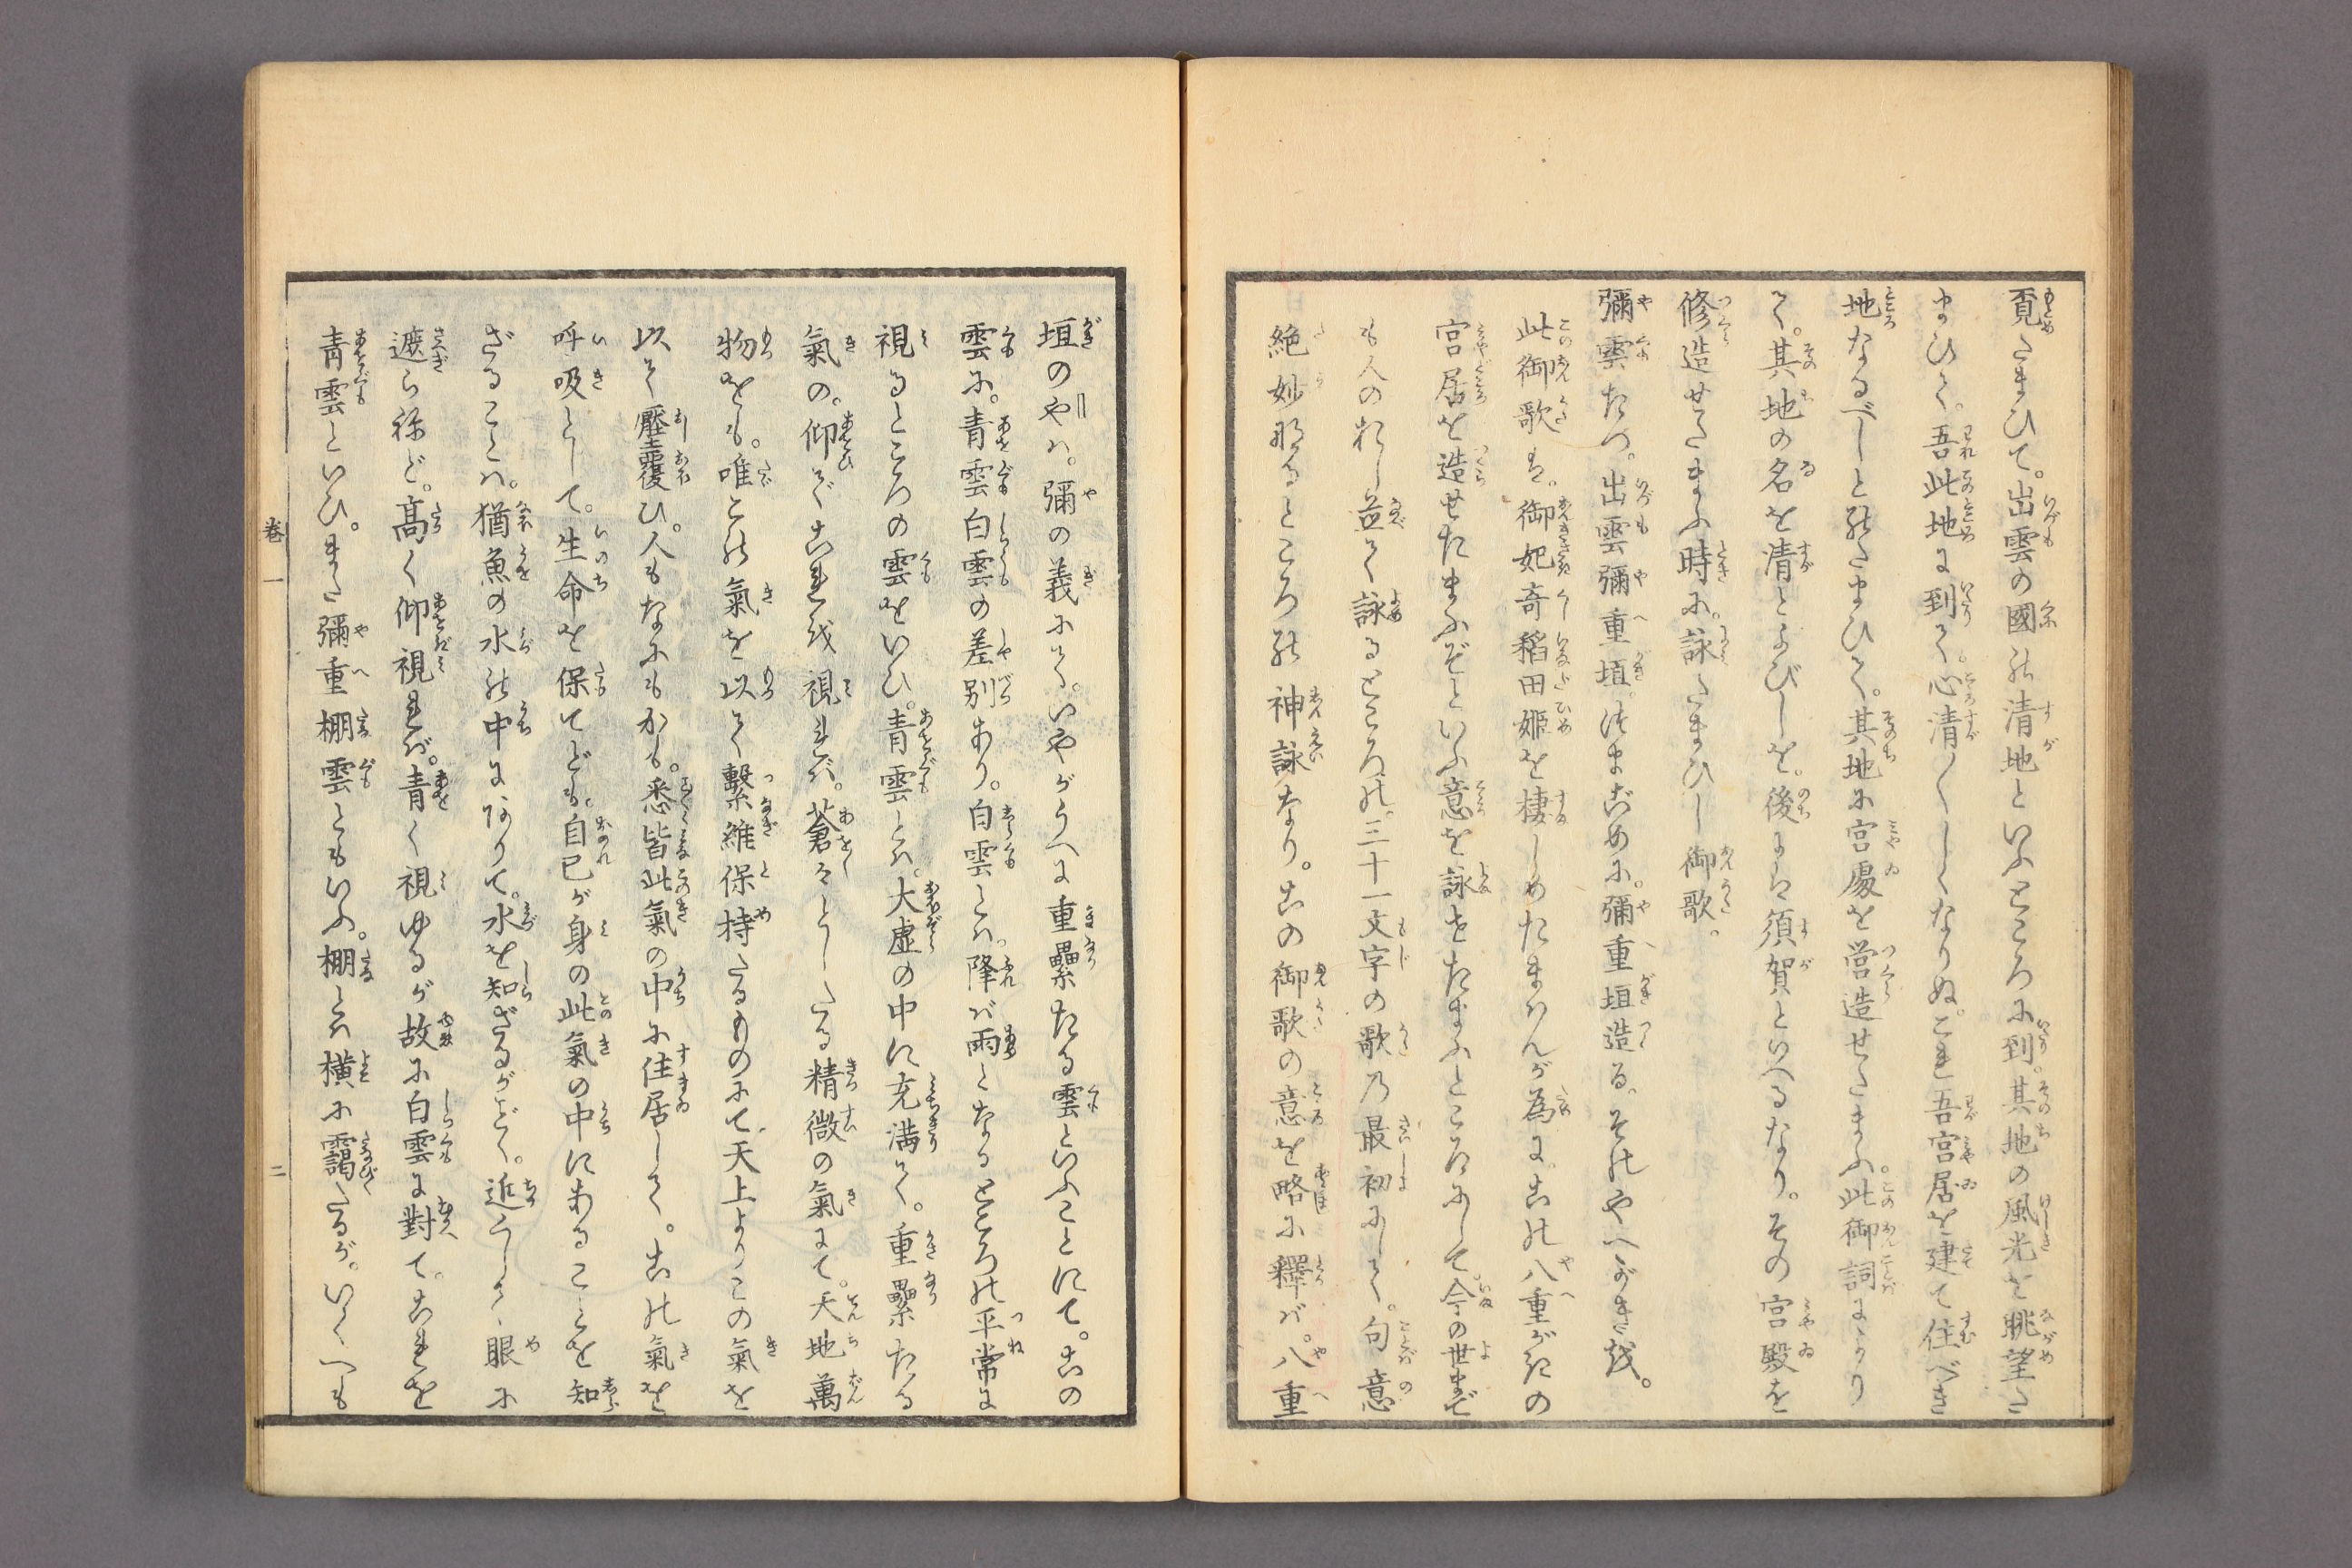 覔たまひて。出雲の國の清地といふところに到。其地の風光を眺望た
まひて。吾此地に到て。心清〱しくなりぬ。これ吾宮居を建て住べき
地なるべしとのたまひて。其地に宮處を営造せたまふ。此御詞により
て。其地の名を清とよびしを。後には須賀といへるなり。その宮殿を
修造せたまふ時に。詠たまひし御歌。
彌雲たつ。出雲彌重垣。つまごめに。彌重垣造る。そのやへがきを。
此御歌は。御妃奇稲田姫を棲しめたまはんが為に。この八重がきの
宮居を造せたまふぞといふ意を詠せたまふところにして今の世まで
も人のおし並て詠るところの。三十一文字の歌の最初にして。句意
絶妙なるところの神詠なり。この御歌の意を略に釋ば。八重
垣のやは。彌の義にて。いやがうへに重纍たる雲といふことにて。この
雲に。青雲白雲の差別あり。白雲とは降ば雨となるところの平常に
視るところの雲をいひ。青雲とは。大虚の中に充満て。重纍たる
氣の。仰ぎこれを視れば。蒼々としたる精微の氣にて。天地萬
物をも。唯この氣を以て繋維保持たるものにて天上よりこの氣を
以て壓覆ひ。人もなにもかも。悉皆此氣の中に住居して。この氣を
呼吸として。生命を保てども。自已が身の此氣の中にあることを知
ざることは。猶魚の水の中にありて。水を知ざるがごとく。近くして眼に
遮らねど。高く仰視れば。青く視ゆるが故に白雲に對て。これを
青雲といひ。また彌重棚雲ともいふ。棚とは横に靄たるが。いくへも
巻一
二